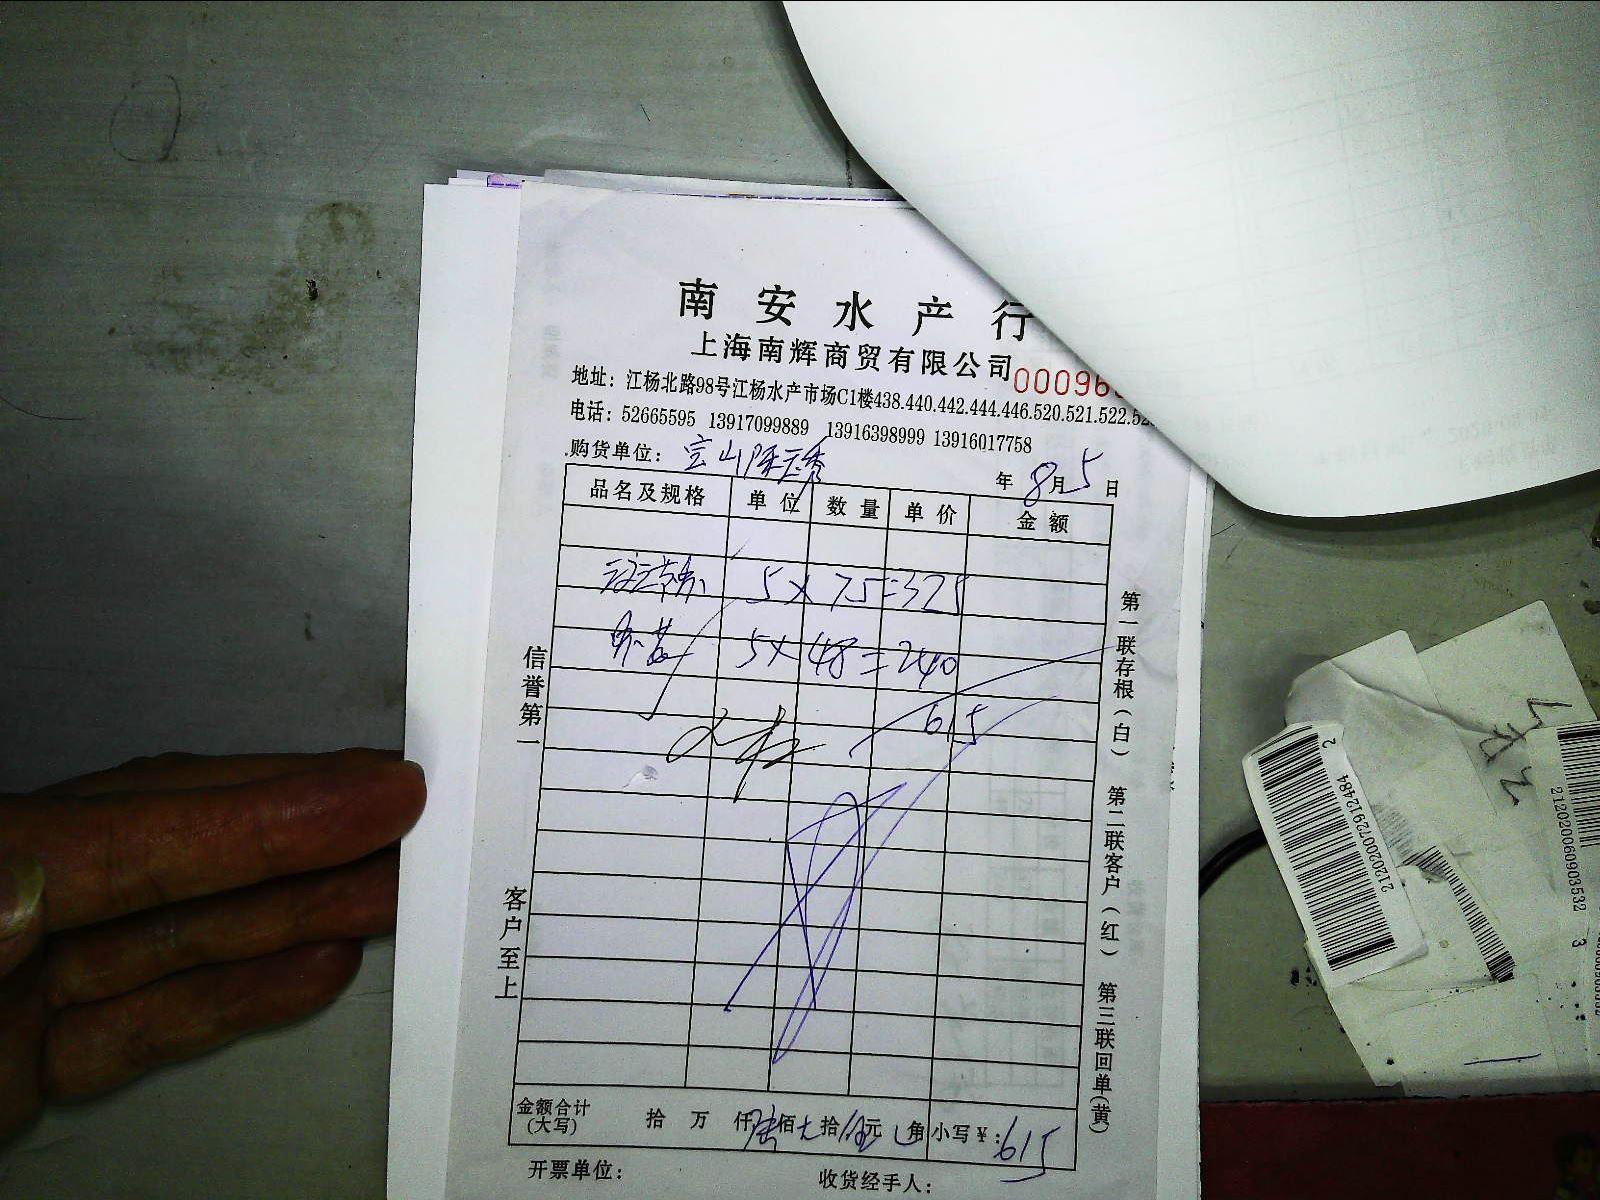 南安水产行
上海南辉商贸有限公司
00096
地址：江杨北路98号江杨水产市场C1楼438.440.442.444.446.520.521.522.52
电话：52665595 13917099889 13916398999 13916017758
购货单位：宝山陈玉秀
年 8月5日
品名及规格 单位 数量 单价 金额
5×75=375
5×48=240
615
金额合计(大写) 拾 万 仟 陆佰 拾 元 角 小写￥：615
开票单位： 收货经手人：
信誉第一 客户至上
第一联存根(白) 第二联客户(红) 第三联回单(黄)
212020072912484 2
212020060903532 3